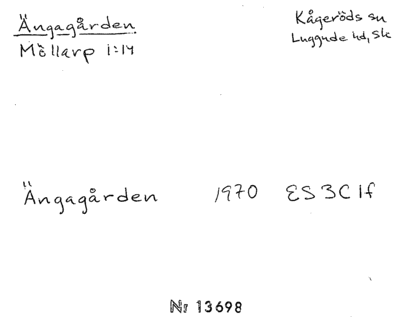 Ängagården
Möllarp 1:14
Kågeröds sn
Luggude hd, Sk
Ängagården 1970 ES 3C 1f
Nr 13698